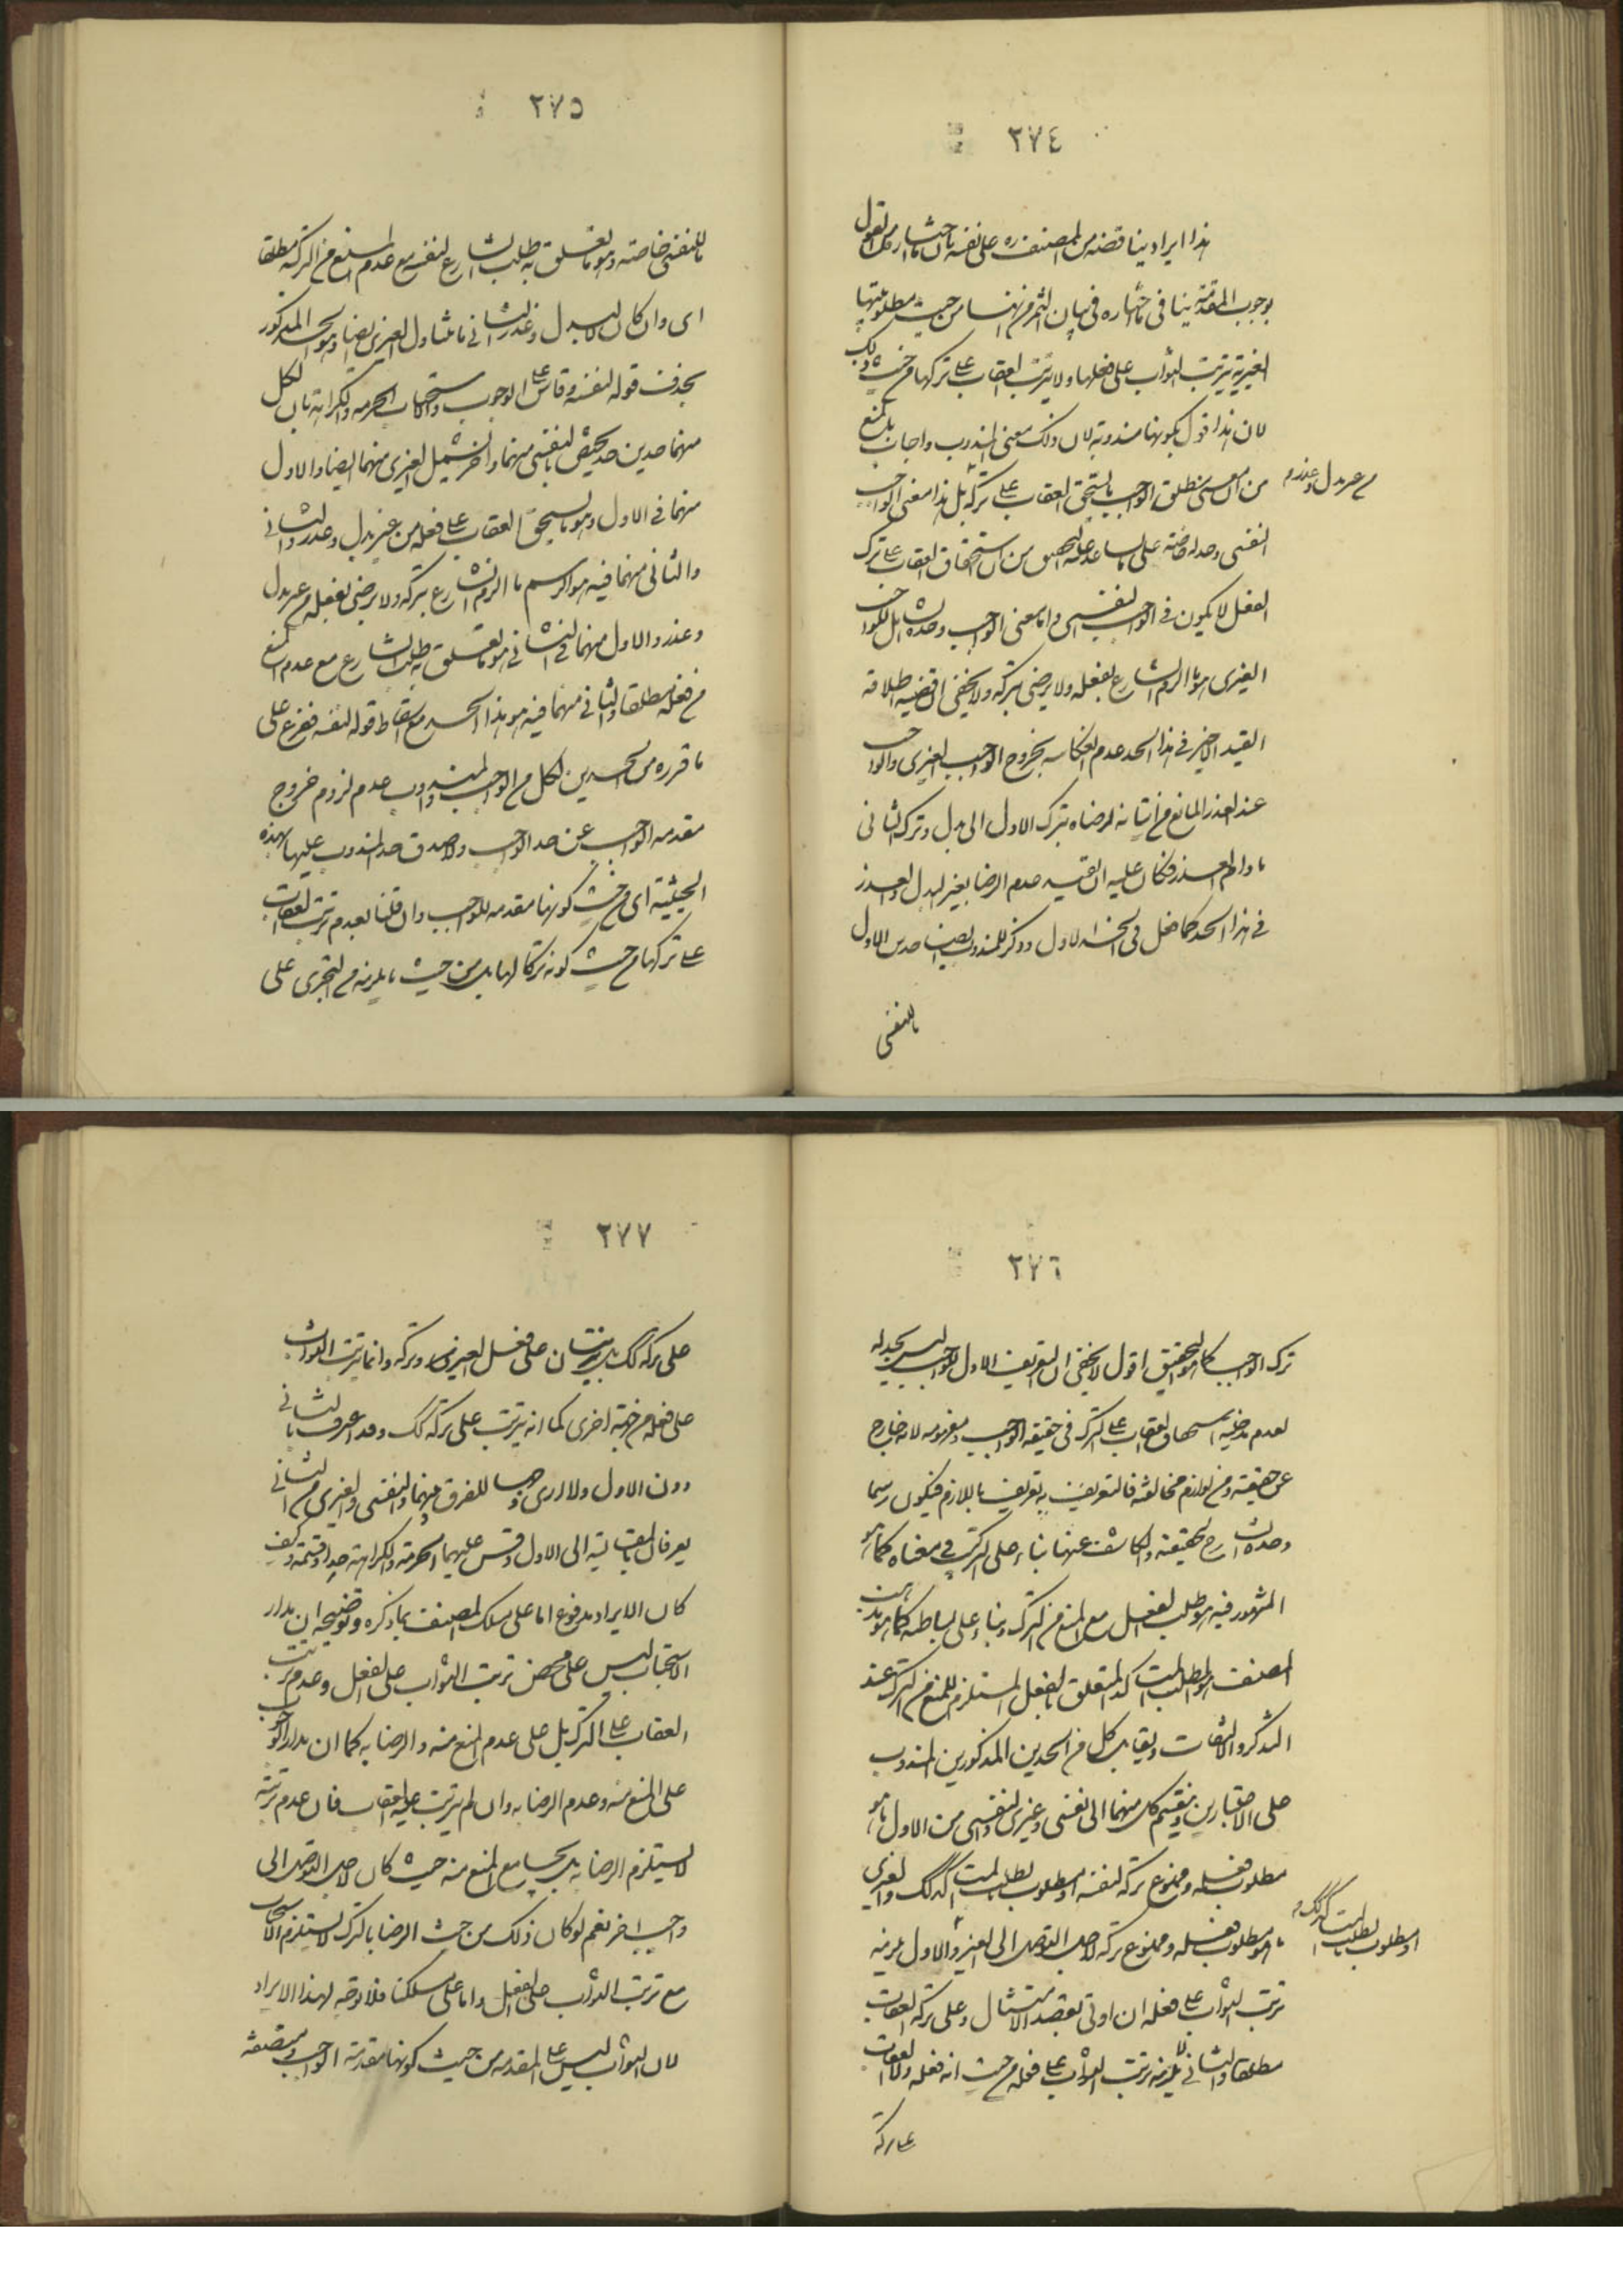 ٢٧٤
هذا ايراد يناقضه من المصنف ره على نفسه بان ما اختاره من القول
بوجوب المقدمة ينافي ما اختاره في بيان الثمرة من انها من حيث مطلوبيتها
الغيرية يترتب الثواب على فعلها ولا يترتب العقاب على تركها من حيث ذلك
لان هذا قول بكونها مندوبة لان ذلك معنى المندوب واجاب بالمنع
من ان معنى مطلق الواجب ما يستحق العقاب على تركه بل هذا معنى الواجب
من غير بدل وعذر
النفسي وحده خاصة على ما ساعد عليه التحقيق من ان استحقاق العقاب على ترك
الفعل لا يكون في الواجب النفسي واما معنى الواجب وحده الشامل للواجب
الغيري هو ما الزم الشارع بفعله ولا يرضى بتركه ولا يخفى ان قضية اطلاق
القيد الاخير في هذا الحد عدم انعكاسه بخروج الواجب التخييري والواجب
عند العذر المانع من اتيانه لرضاه بترك الاول الى بدل وترك الثاني
ما دام العذر فكان عليه ان يقيد عدم الرضا بغير البدل والعذر
في هذا الحد كما فعل في الحد الاول وذكر للمندوب ايضا حدين الاول
ما للنفسي
٢٧٥
ما للنفسي خاصة وهو ما تعلق به طلب الشارع لنفسه مع عدم المنع من الترك مطلقا
اي وان كان لا لبدل وعذر الثاني ما يتناول الغيري ايضا وهو الحد المذكور
بحذف قوله لنفسه وقاس على الوجوب والاستحباب الحرمة والكراهة بان لكل
منهما حدين حد يختص بالنفسي منهما واخر يشمل الغيري منهما ايضا والاول
منهما في الاول وهو ما يستحق العقاب على فعله من غير بدل وعذر والثاني
والثاني منهما فيه هو ما الزم الشارع بتركه ولا يرضى بفعله من غير بدل
وعذر والاول منهما في الثاني هو ما تعلق به طلب الشارع مع عدم المنع
من فعله مطلقا والثاني منهما فيه هو هذا الحد مع اسقاط قوله لنفسه ففرع على
ما قرره من الحدين لكل من الواجب والمندوب عدم لزوم خروج
مقدمة الواجب عن حد الواجب ولا صدق حد المندوب عليها بهذه
الحيثية اي من حيث كونها مقدمة للواجب وان قلنا بعدم ترتب العقاب
على تركها من حيث كونه تركا لها بل من حيث ما يلزمه من التجري على
٢٧٦
ترك الواجب كما هو التحقيق اقول لا يخفى ان التعريف الاول للواجب ليس بحد له
لعدم مدخلية استحقاق العقاب على الترك في حقيقة الواجب ومفهومه لانه خارج
عن حقيقته ومن لوازم مخالفته فالتعريف به تعريف باللازم فيكون رسما
وحده الشارح لحقيقته والكاشف عنها بناء على التركب في معناه كما هو
المشهور فيه هو طلب الفعل مع المنع من الترك وبناء على بساطته كما هو مذهب
المصنف هو الطلب المتاكد المتعلق بالفعل المستلزم للمنع من الترك عند
التذكر والالتفات ويقابل كل من الحدين المذكورين المندوب
على الاعتبارين وينقسم كل منهما الى نفسي وغيري والنفسي من الاول ما هو
مطلوب فعله وممنوع تركه لنفسه او مطلوب بطلب متاكد كذلك والغيري
او مطلوب بطلب متاكد كذلك
ما هو مطلوب فعله وممنوع تركه لاجل التوصل الى الغير والاول يلزمه
ترتب الثواب على فعله ان اوتي بقصد الامتثال وعلى تركه العقاب
مطلقا والثاني لا يلزمه ترتب الثواب على فعله من حيث انه فعله ولا العقاب
على تركه
٢٧٧
على تركه كك بل يترتبان على فعل الغير وتركه وانما يترتب الثواب
على فعله من جهة اخرى كما انه يترتب على تركه كك وقد اعترف بالثاني
دون الاول ولا ارى وجها للفرق بينهما والنفسي والغيري من الثاني
يعرفان بالمقايسة الى الاول وقس عليهما الحرمة والكراهة حدا وقسمة وكيف
كان الايراد مدفوع اما على مسلك المصنف بما ذكره وتوضيحه ان مدار
الاستحباب ليس على محض ترتب الثواب على الفعل وعدم ترتب
العقاب على الترك بل على عدم المنع منه والرضا به كما ان مدار الوجوب
على المنع منه وعدم الرضا به وان لم يترتب عليه العقاب فان عدم ترتبه
لا يستلزم الرضا به بل يجامع المنع منه حيث كان لاجل التوصل الى
واجب اخر نعم لو كان ذلك من حيث الرضا بالترك لاستلزم الاستحباب
مع ترتب الثواب على الفعل واما على مسلكنا فلا توجه لهذا الايراد
لان الثواب ليس على المقدمة من حيث كونها مقدمة الواجب